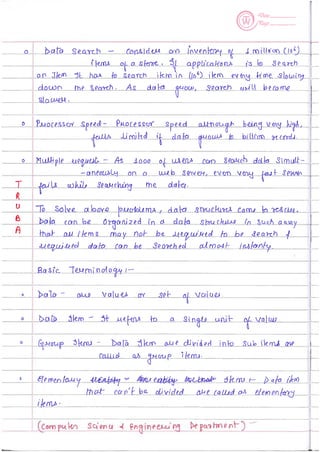 Data Search - Consider an inventory of 1 million (10⁶)
items of a store. If application is to search
an Item It has to search item in (10⁶) item every time slowing
down the search. As data grow, search will become
slower.
Processor Speed - Processor speed although being very high,
falls limited if data grows to billion records.
Multiple request - As 1000 of users can search data simult-
-aneously on a web server, even very fast server
fails while searching the data.
T
R
U
B
A
To Solve above problems, data structures came to rescue.
Data can be Organized in a data structure in such away
that all items may not be required to be search &
required data can be searched almost instantly.
Basic Terminology :-
Data - are values or set of values
Data Item - It refers to a single unit of values
Group Items - Data Item are divided into Sub items are
called as group items.
Elementary Items :- Data item
that can't be divided are called as elementary
items.
(Computer Science & Engineering Department)